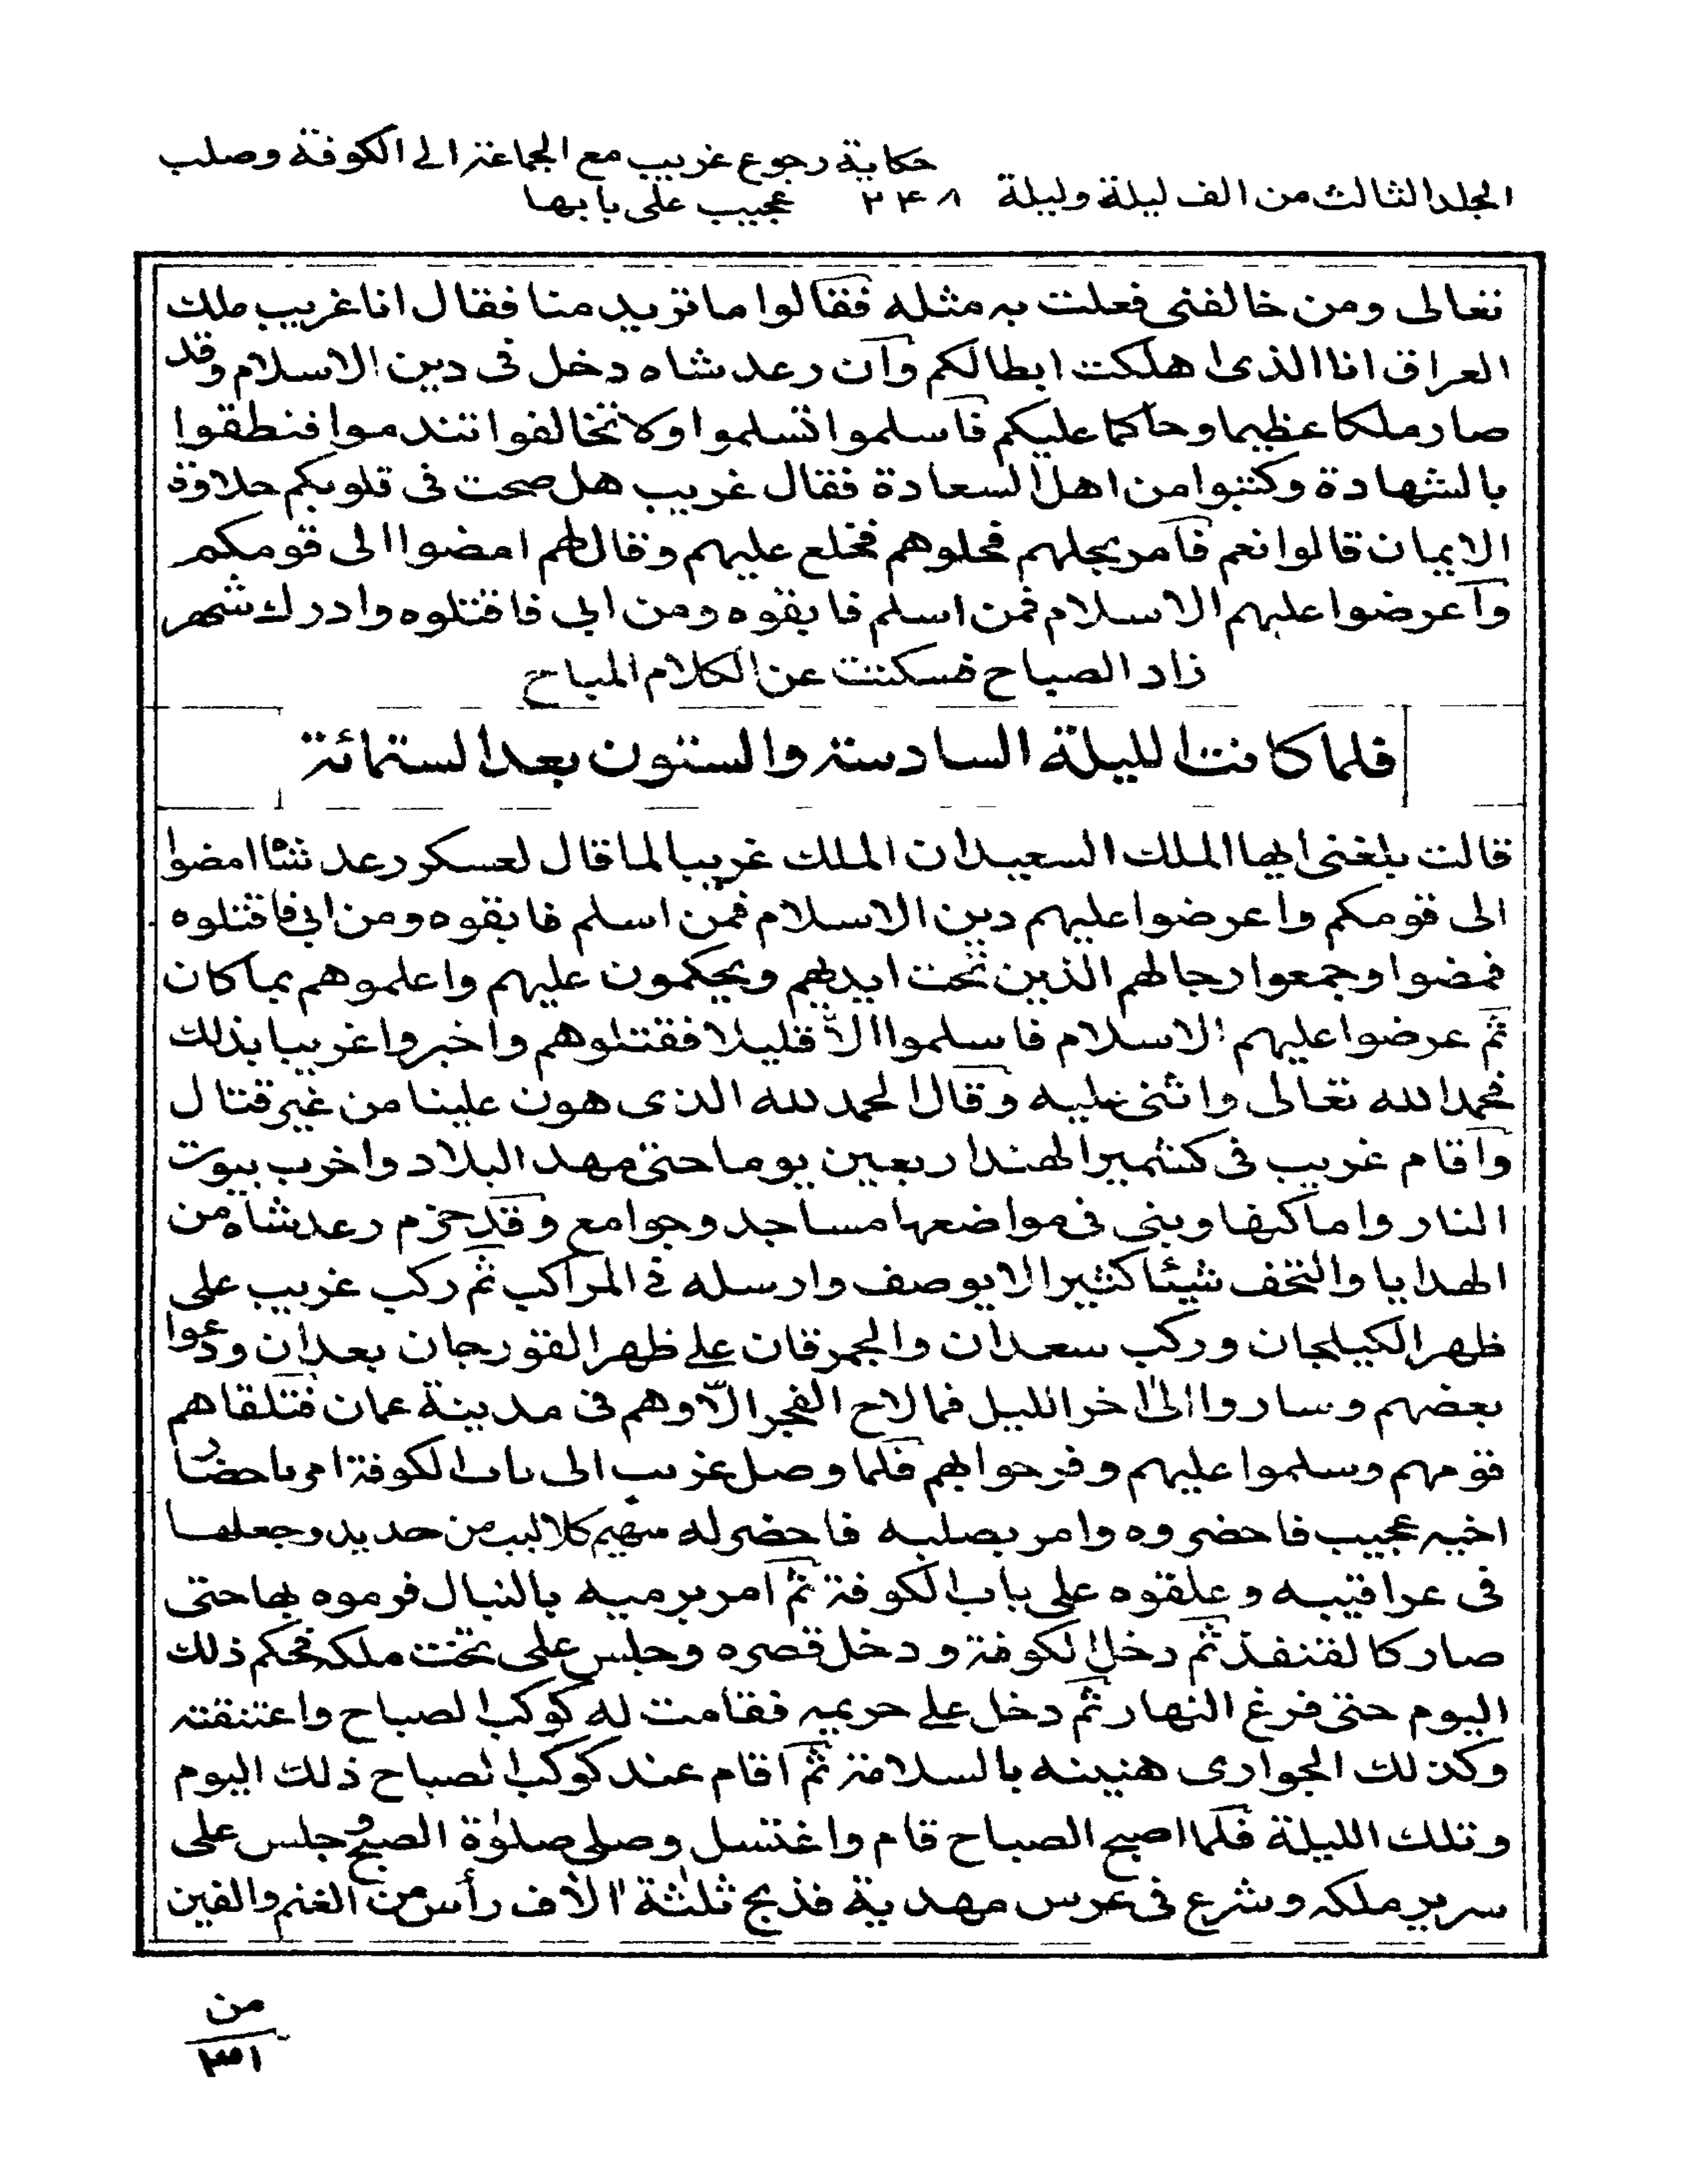 حكاية رجوع غريب مع الجماعة الى الكوفة وصلب
الجلد الثالث من الف ليلة وليلة ۲۴۸ عجيب على بابها
تعالى ومن خالفنى فعلت به مثله فقالوا ما تريد منا فقال انا غريب ملك
العراق انا الذى اهلكت ابطالكم وآن رعد شاه دخل فى دين الاسلام وقد
صار ملكا عظيما وحاكما عليكم فآسلموا تسلموا ولا تخالفوا تندموا فنطقوا
بالشهادة وكتبوا من اهل السعادة فقال غريب هل صحت فى قلوبكم حلاوة
الايمان قالوا نعم فآمر بحلهم فحلوهم فخلع عليهم وقال لهم امضوا الى قومكم
وآعرضوا عليهم الاسلام فمن اسلم فابقوه ومن ابى فاقتلوه وادرك شهر
زاد الصباح فسكتت عن الكلام المباح
فلما كانت الليلة السادسة والستون بعد الستمائة
قالت بلغنى ايها الملك السعيد ان الملك غريبا لما قال لعسكر رعد شاه امضوا
الى قومكم واعرضوا عليهم دين الاسلام فمن اسلم فابقوه ومن ابى فاقتلوه
فمضوا وجمعوا رجالهم الذين تحت ايديهم ويحكمون عليهم واعلموهم بما كان
ثم عرضوا عليهم الاسلام فاسلموا الّا قليلا فقتلوهم واخبروا غريبا بذلك
فحمد الله تعالى واثنى عليه وقال الحمد لله الذى هون علينا من غير قتال
وآقام غريب فى كشمير الهند اربعين يوما حتى مهد البلاد واخرب بيوت
النار واماكنها وبنى فى مواضعها مساجد وجوامع وقد حزم رعد شاه من
الهدايا والتحف شيئا كثيرا لا يوصف وارسله فى المراكب ثم ركب غريب على
ظهر الكيلجان وركب سعدان والجمرقان على ظهر القورجان بعد ان ودعوا
بعضهم وساروا الى اخر الليل فما لاح الفجر الّا وهم فى مدينة عمان فتلقاهم
قومهم وسلموا عليهم وفرحوا بهم فلما وصل غريب الى باب الكوفة امر باحضار
اخيه عجيب فاحضروه وامر بصلبه فاحضر له سهيم كلاليب من حديد وجعلها
فى عراقيبه وعلقوه على باب الكوفة ثم آمر برميه بالنبال فرموه بها حتى
صار كالقنفذ ثم دخل الكوفة ودخل قصره وجلس على تخت ملكه فحكم ذلك
اليوم حتى فرغ النهار ثم دخل على حريمه فقامت له كوكب الصباح واعتنقته
وكذلك الجوارى هنينه بالسلامة ثم آقام عند كوكب الصباح ذلك اليوم
وتلك الليلة فلما اصبح الصباح قام واغتسل وصلى صلوٰة الصبح وجلس على
سرير ملكه وشرع فى عرس مهدية فذبح ثلٰثة الآف رأس من الغنم والفين
من
۳۱